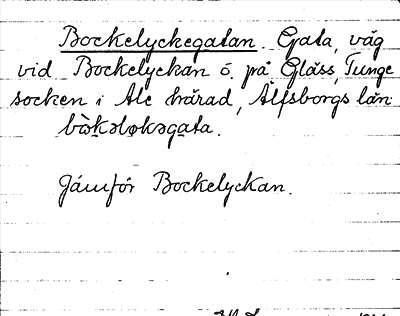 Bockelyckegatan. Gata, väg
vid Bockelyckan ö. på Gläss, Tunge
socken i Ale härad, Älfsborgs län
bòkələkəgata.
Jämför Bockelyckan.